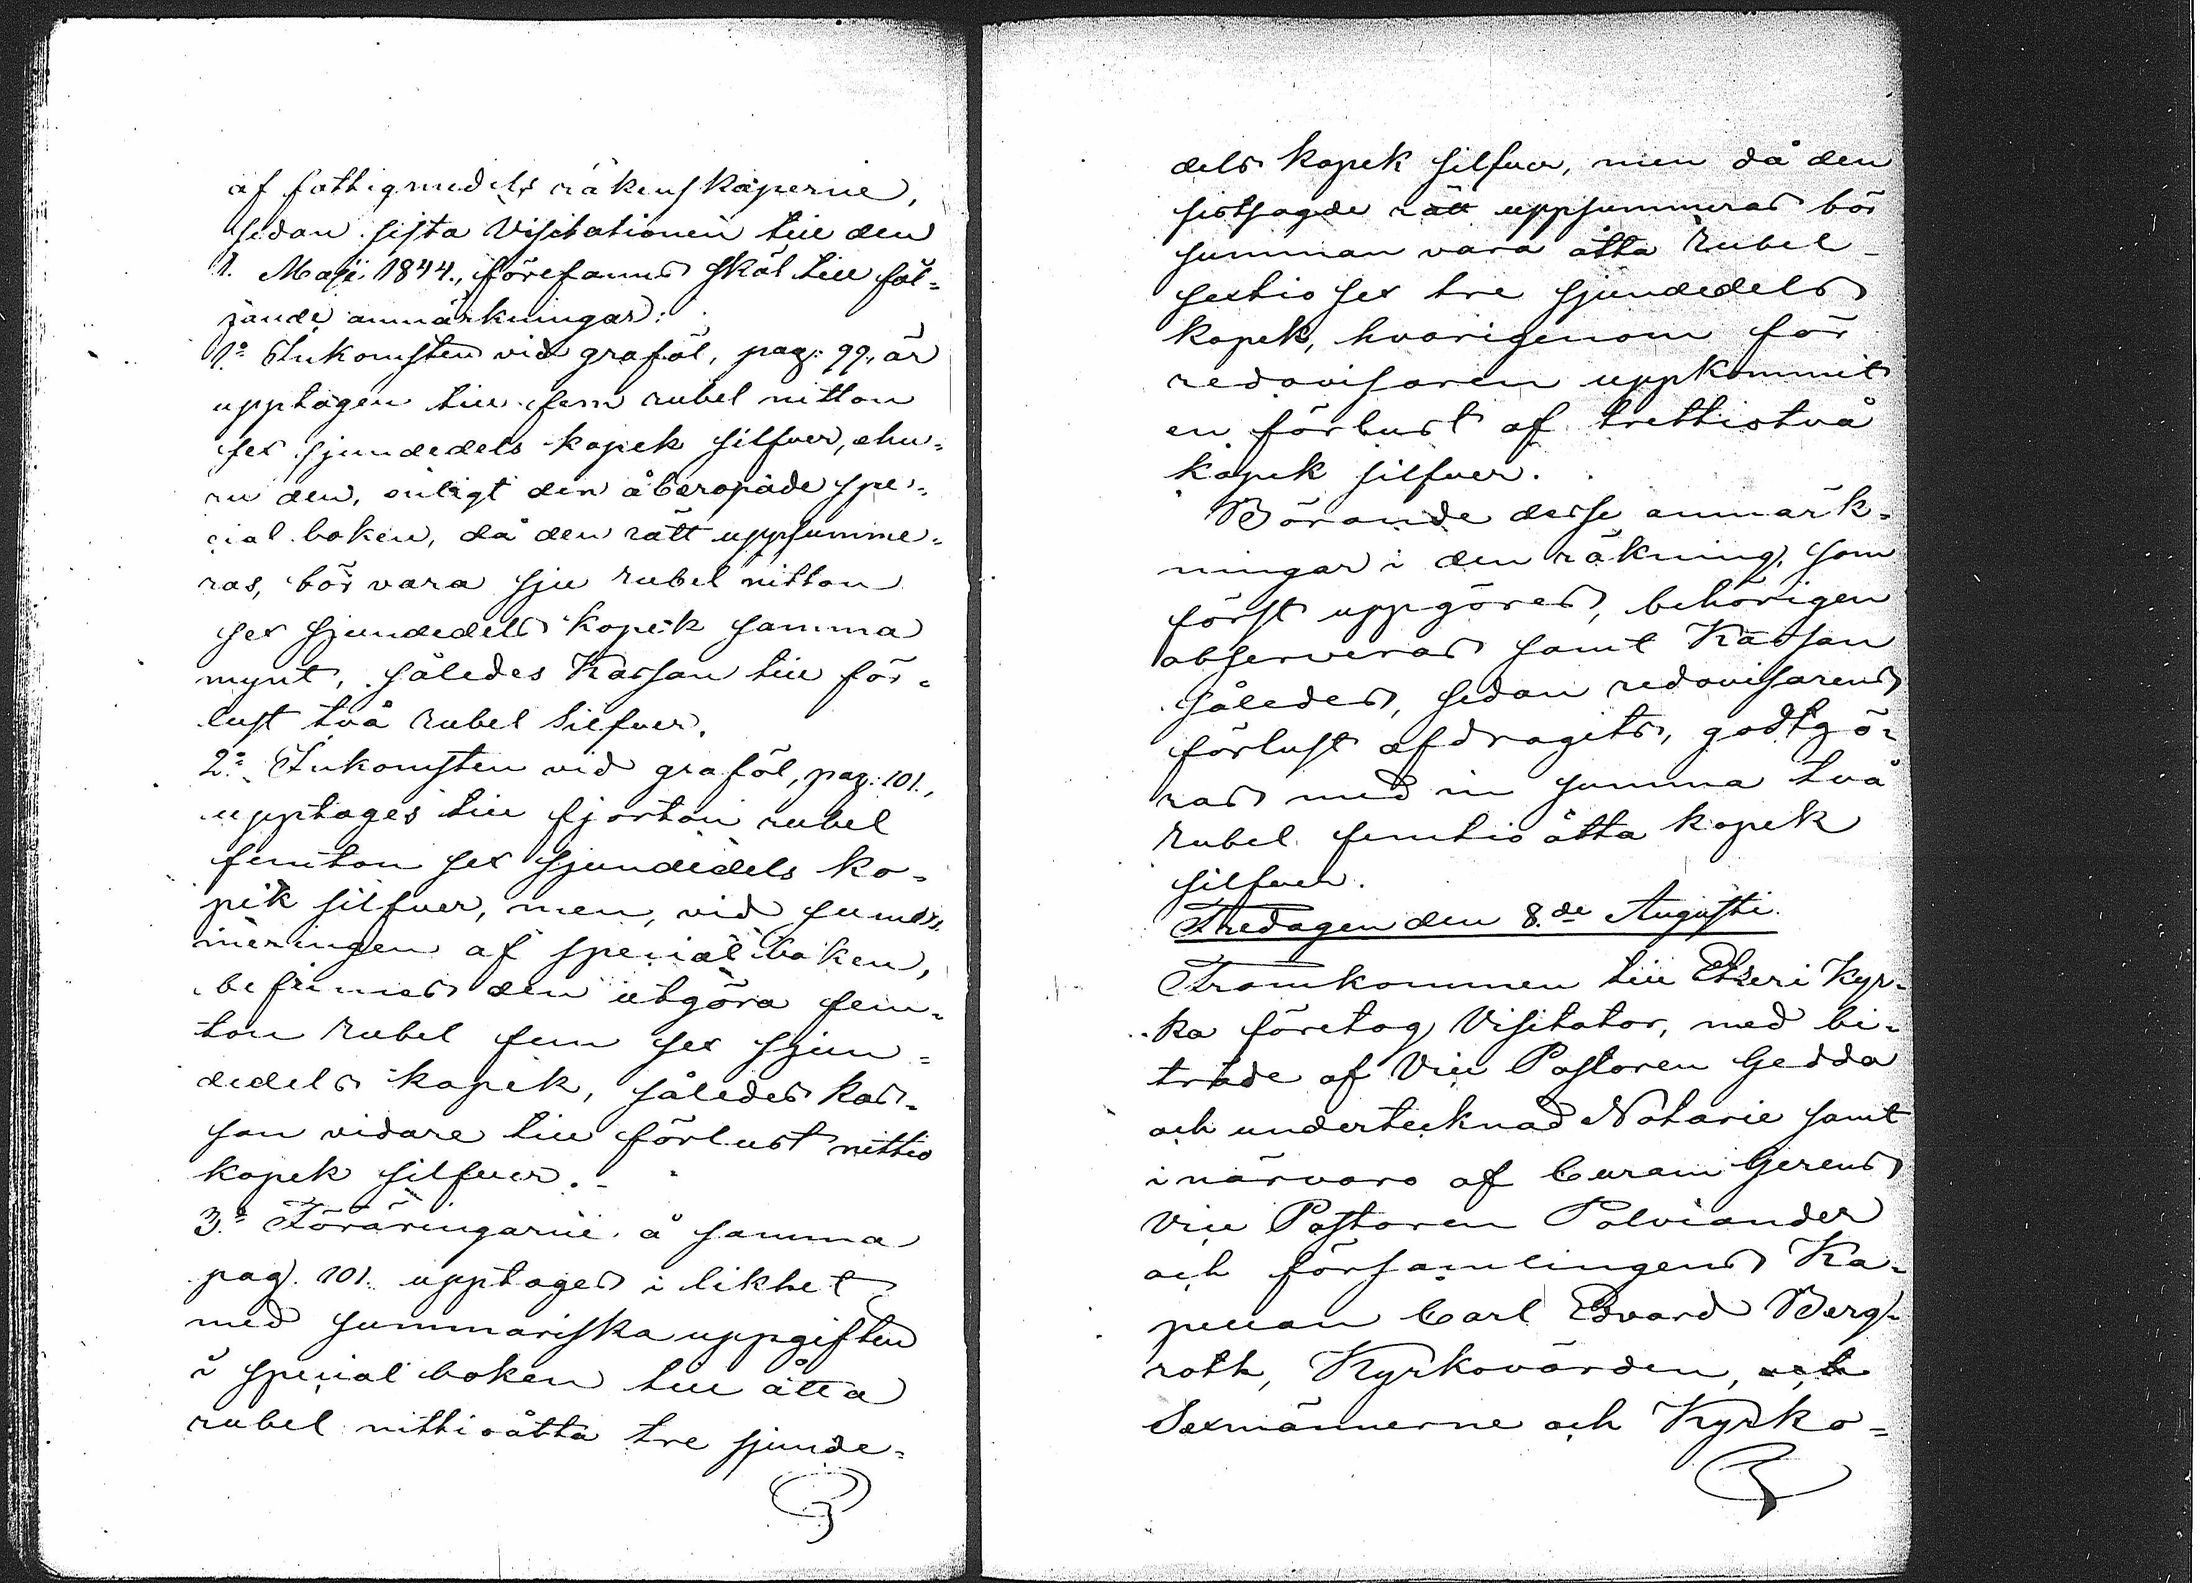 af fattigmedels räkenskaperne,
sedan sista Visitationen till den
1. Maji 1844., förefanns skäl till föl=
jande anmärkningar:
1:o Inkomsten vid graföl, pag: 99., är
upptagen till fem rubel nitton
sex sjundedels kopek silfver, ehu=
ru den, enligt den åberopade spe=
cial boken, då den rätt uppsumme=
ras, bör vara sju rubel nitton
sex sjundedels kopek samma
mynt, således Kassan till för=
lust två rubel silfver.
2:o Inkomsten vid graföl, pag. 101.,
upptages till fjorton rubel
femton sex sjundedels ko=
pek silfver, men, vid sum=
meringen af special boken,
befinnes den utgöra fem=
ton rubel fem sex sjun=
dedels kopek, således kas=
san vidare till förlust nittio
kopek silfver.
3:o Föräringarne å samma
pag. 101. upptages i likhet
med summariska uppgiften
i special boken till åtta
rubel nittioåtta tre sjunde=
dels kopek silfver, men då den
sistsagde rätt uppsummeras bör
summan vara åtta rubel
sextio sex tre sjundedels
kopek, hvarigenom för
redovisaren uppkommit
en förlust af trettiotvå
kopek silfver.
Börande desse anmärk=
ningar i den räkning, som
först uppgöres, behörigen
observeras samt Kassan
således, sedan redovisarens
förlust afdragits, godtgö=
ras med en summa två
rubel femtio åtta kopek
silfver.
Fredagen den 8.de Augusti.
Framkommen till Etseri Kyr=
ka företog Visitator, med bi=
träde af Vice Pastoren Gedda
och undertecknad Notarie samt
i närvaro af Curam Gerens
Vice Pastoren Polviander
och församlingens Ka=
pellan Carl Edvard Berg=
roth, Kyrkovärden, och
Sexmännerne och Kyrko=